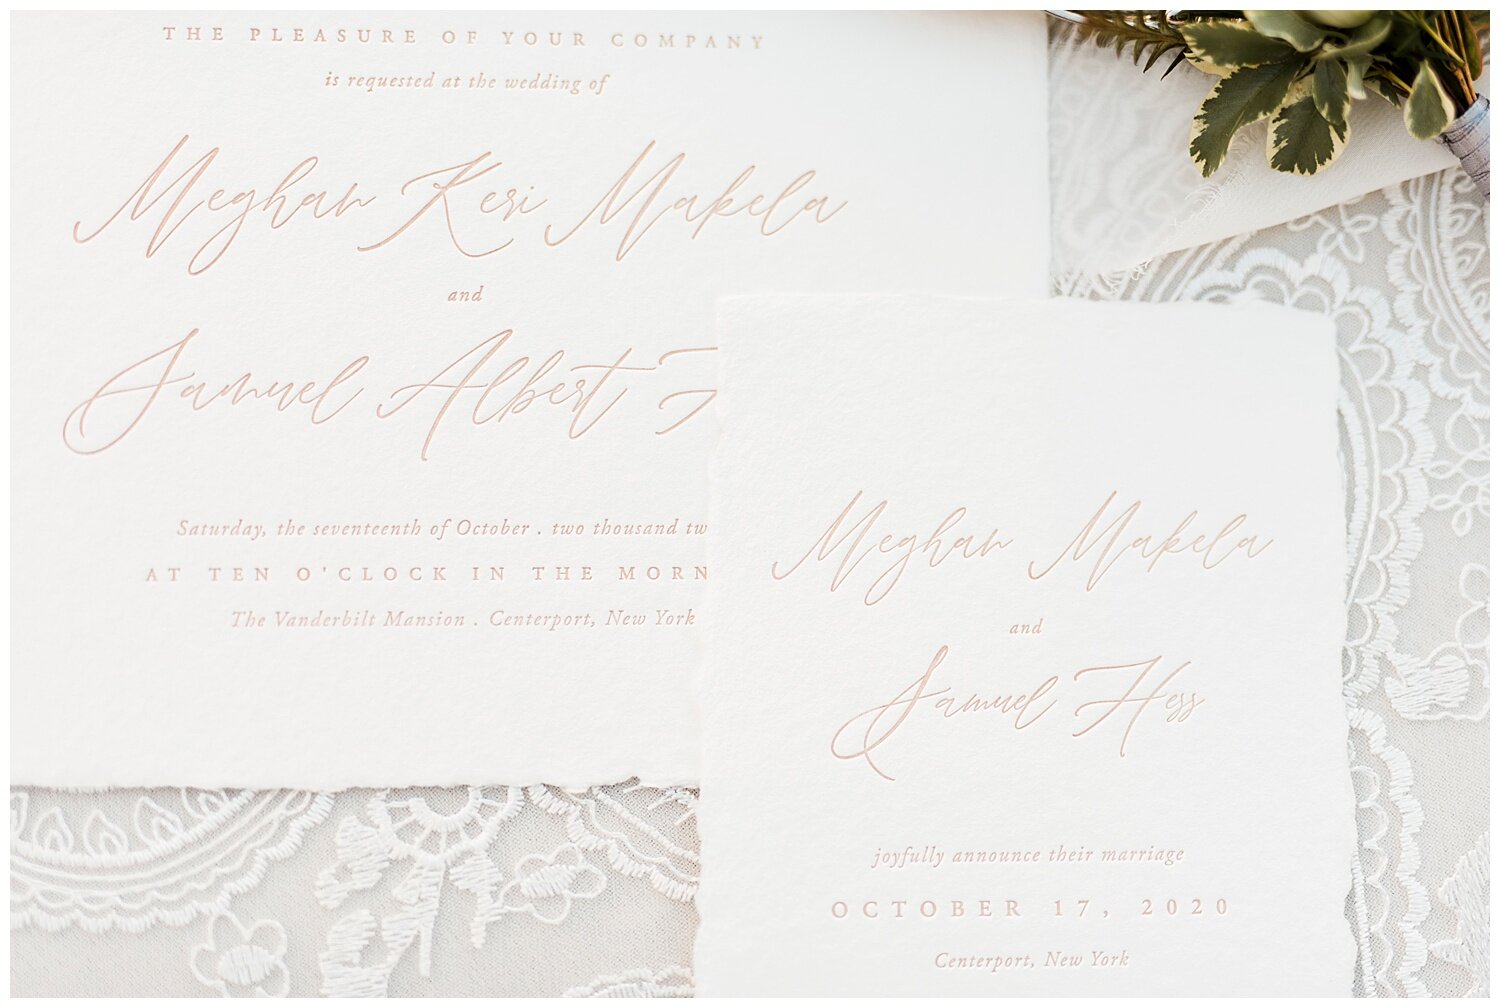 THE PLEASURE OF YOUR COMPANY
is requested at the wedding of
Meghan Keri Makela
and
Samuel Albert
Saturday, the seventeenth of October . two thousand
AT TEN O'CLOCK IN THE
The Vanderbilt Mansion . Centerport, New York
Meghan Makela
and
Samuel Hess
joyfully announce their marriage
OCTOBER 17, 2020
Centerport, New York